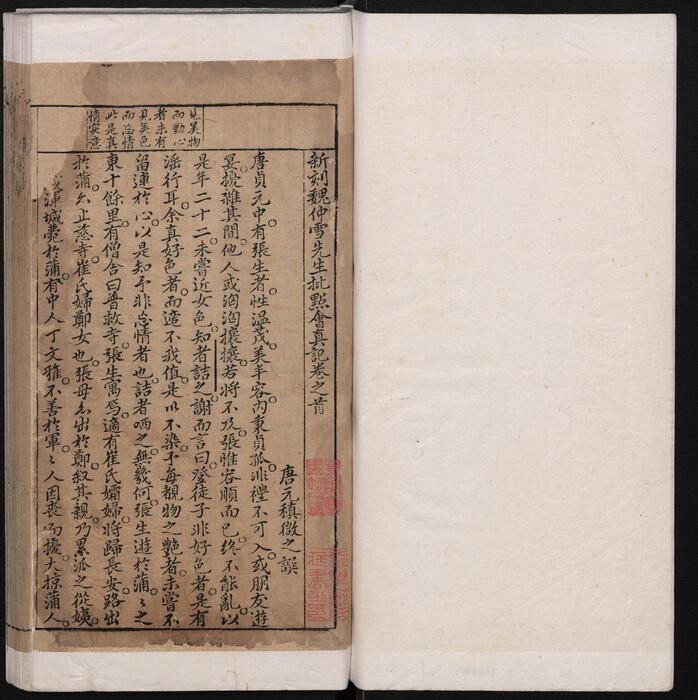 見美物
而動心
者未有
見美色
而忘情
此是真
情实意
新刻魏仲雪先生批點會真記卷之首
唐元稹微之譔
唐貞元中有張生者性溫茂美丰容內秉貞孤非禮不可入或朋友遊
宴擾雜其間他人或洶洶攘攘若將不及張惟容順而已終不能亂以
是年二十二未嘗近女色知者詰之謝而言曰登徒子非好色者是有
滛行耳余真好色者而適不我值是以不染予每覩物之艷者未嘗不
留連於心以是知予非忘情者也詰者哂之無幾何張生遊於蒲々之
東十餘里有僧舍曰普救寺張生寓焉適有崔氏孀婦將歸長安路出
於蒲亦止慈寺崔氏婦鄭女也張母亦出於鄭叙其親乃累派之從姨
歲渾城薨於蒲有中人丁文雅不善於軍々人因喪而擾大掠蒲人